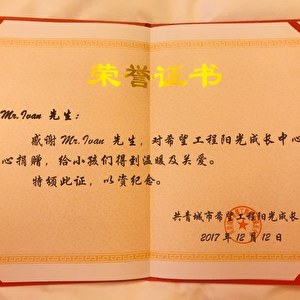 荣誉证书
Mr.Ivan 先生：
感谢 Mr.Ivan 先生，对希望工程阳光成长中心
心捐赠，给小孩们得到温暖及关爱。
特颁此证，以资纪念。
共青城市希望工程阳光成长
2017 年 12 月 12 日